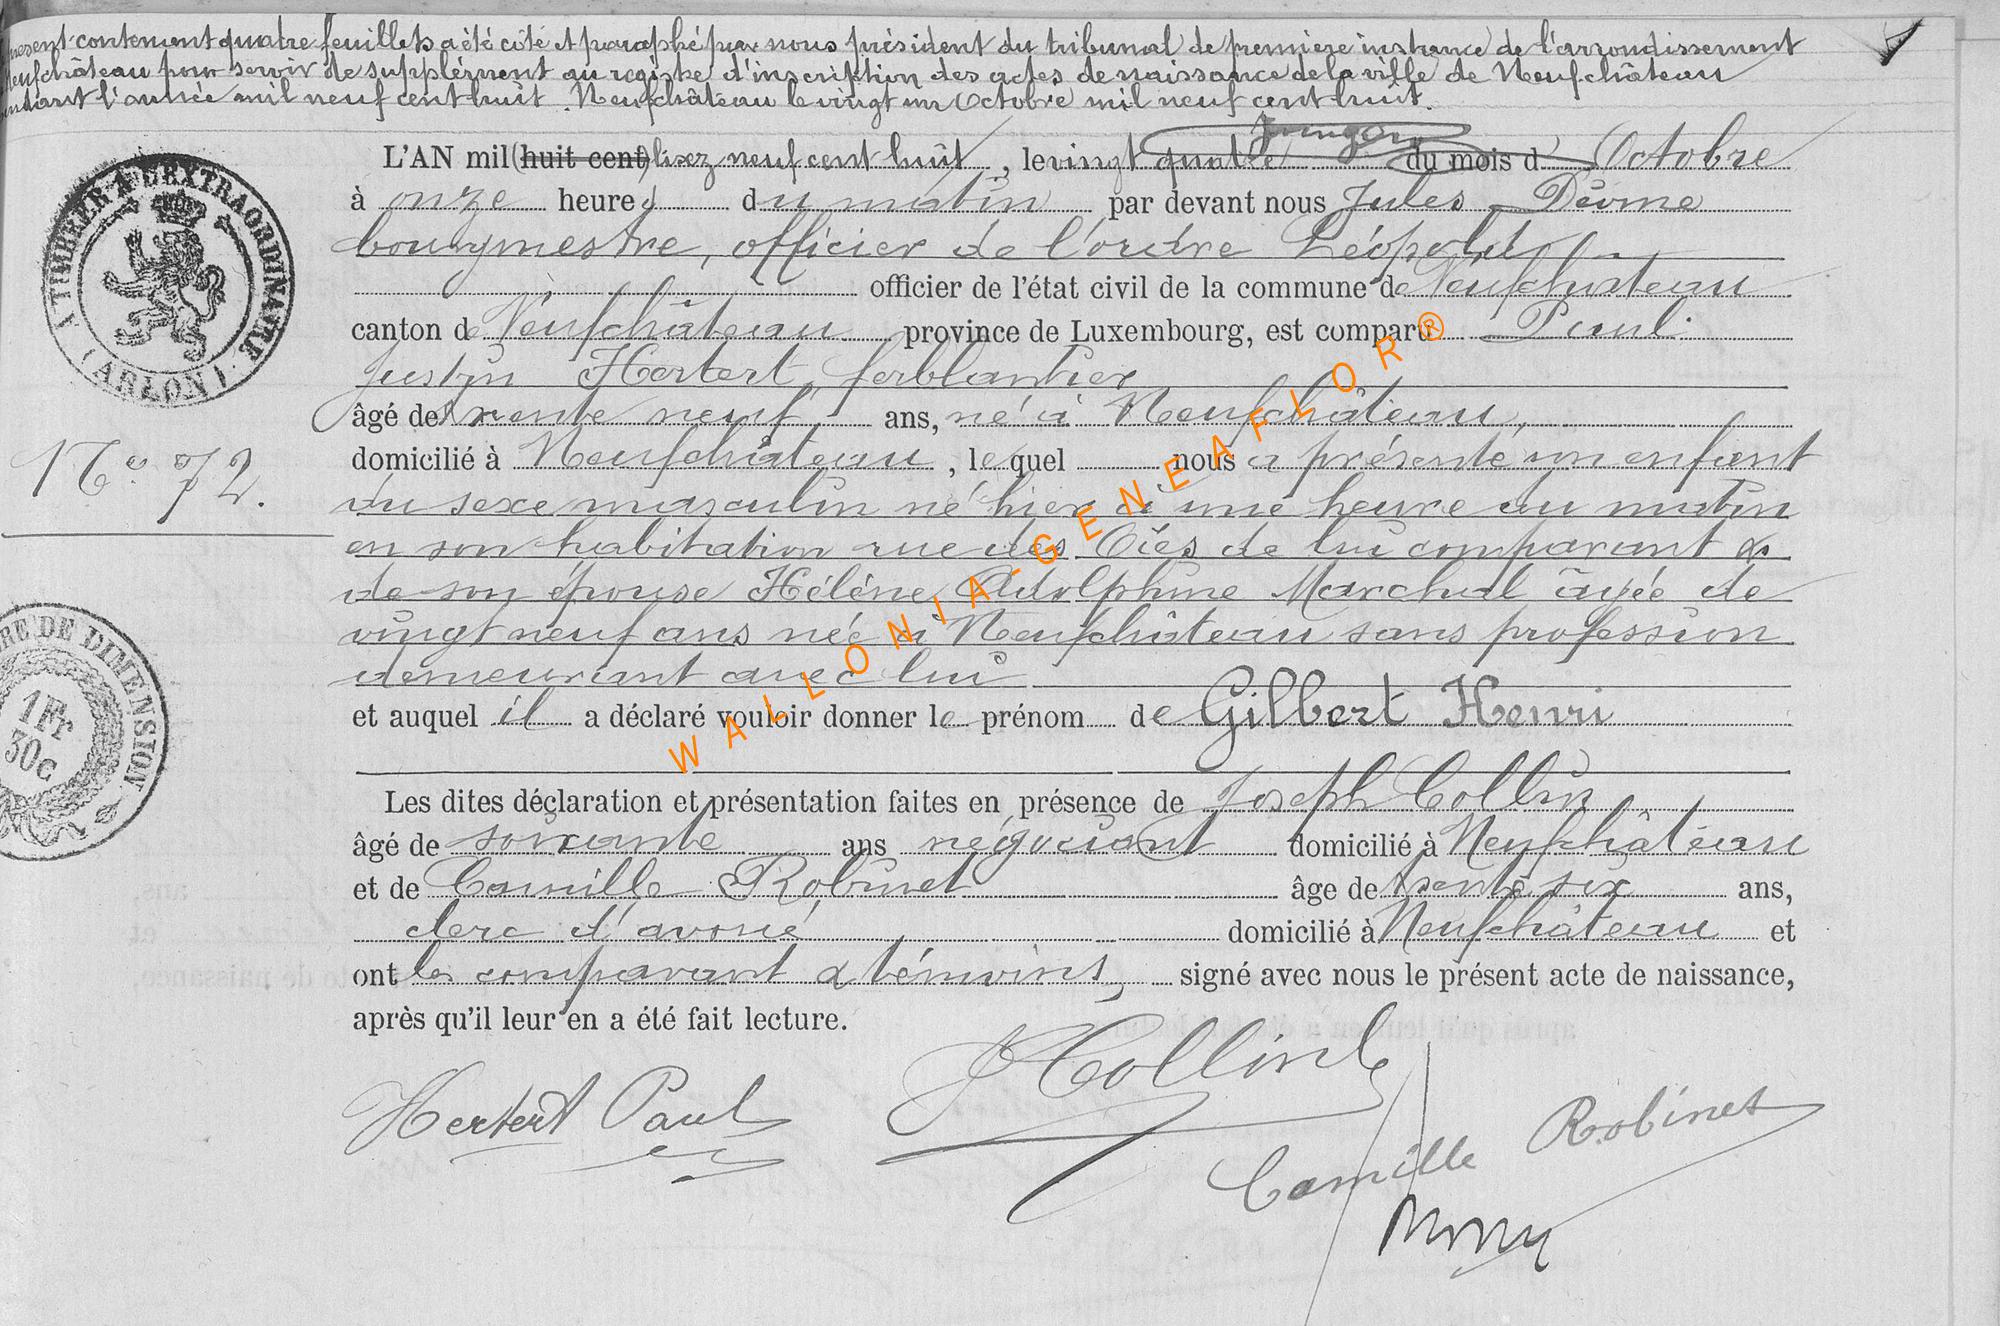 présent contenant quatre feuillets a été coté et paraphé par nous président du tribunal de première instance de l'arrondissement
Neufchâteau pour servir de supplément au registre d'inscription des actes de naissance de la ville de Neufchâteau
pendant l'année mil neuf cent huit. Neufchâteau le vingt un Octobre mil neuf cent huit.
L'AN mil (huit cent) lisez neuf cent huit, le vingt quatre du mois d' Octobre
à onze heures du matin par devant nous Jules
bourgmestre, officier de l'ordre Léopold
officier de l'état civil de la commune de Neufchâteau
canton de Neufchâteau province de Luxembourg, est comparu Paul
Justin Hertert, ferblantier
âgé de trente neuf ans, né à Neufchâteau,
domicilié à Neufchâteau, lequel nous a présenté un enfant
du sexe masculin né hier à une heure du matin
en son habitation rue des de lui comparant &
de son épouse Hélène Adolphine Marchal âgée de
vingt neuf ans née à Neufchâteau sans profession
demeurant avec lui
et auquel il a déclaré vouloir donner le prénom de Gilbert Henri
Les dites déclaration et présentation faites en présence de Joseph Collin
âgé de soixante ans négociant domicilié à Neufchâteau
et de Camille Robinet âge de trente six ans,
clerc d'avoué domicilié à Neufchâteau et
ont les comparant & témoins, signé avec nous le présent acte de naissance,
après qu'il leur en a été fait lecture.
Hertert Paul
J Collin
Camille Robinet
No 72.
A TIMBRER A L'EXTRAORDINAIRE
(ARLON)
RE DE DIMENSION
1Fr
30c
WALLONIA-GENEAFLOR®